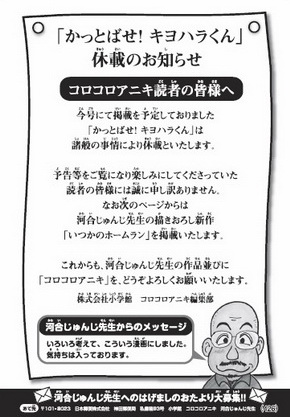 「かっとばせ! キヨハラくん」
休載のお知らせ
コロコロアニキ読者の皆様へ
今号にて掲載を予定しておりました
「かっとばせ! キヨハラくん」は
諸般の事情により休載といたします。
予告等をご覧になり楽しみにしてくださっていた
読者の皆様には誠に申し訳ありません。
なお次のページからは
河合じゅんじ先生の描きおろし新作
「いつかのホームラン」を掲載いたします。
これからも、河合じゅんじ先生の作品並びに
「コロコロアニキ」を、どうぞよろしくお願いいたします。
株式会社小学館 コロコロアニキ編集部
河合じゅんじ先生からのメッセージ
いろいろ考えて、こういう漫画にしました。
気持ちは入っております。
河合じゅんじ先生へのはげましのおたより大募集!!
あて先 〒101-8023 日本郵便株式会社 神田郵便局 私書箱83号 小学館 コロコロアニキ 河合じゅんじ先生